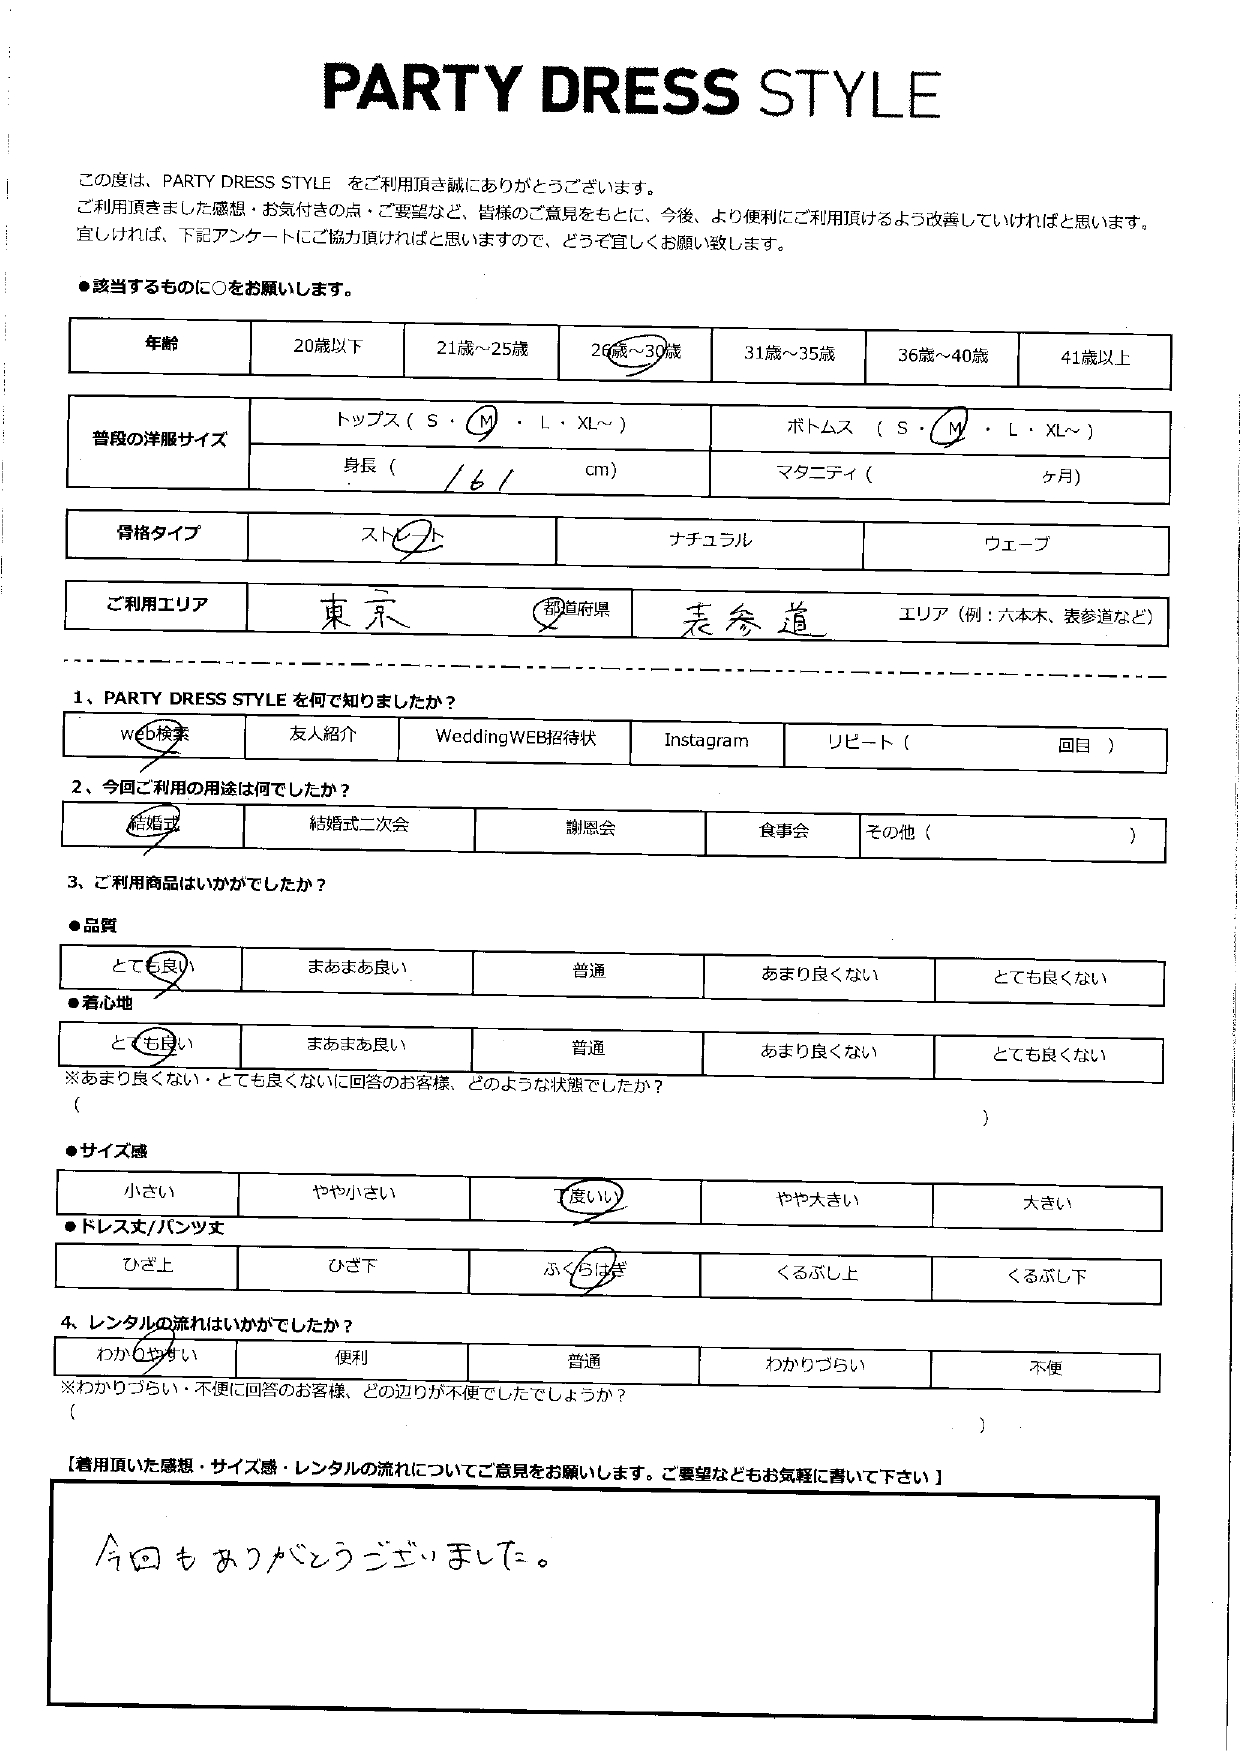 PARTY DRESS STYLE
この度は、PARTY DRESS STYLE をご利用頂き誠にありがとうございます。
ご利用頂きました感想・お気付きの点・ご要望など、皆様のご意見をもとに、今後、より便利にご利用頂けるよう改善していければと思います。
宜しければ、下記アンケートにご協力頂ければと思いますので、どうぞ宜しくお願い致します。
●該当するものに○をお願いします。
年齢 20歳以下 21歳～25歳 26歳～30歳 31歳～35歳 36歳～40歳 41歳以上
普段の洋服サイズ トップス ( S ・ M ・ L ・ XL～ ) ボトムス ( S ・ M ・ L ・ XL～ )
身長 ( 161 cm) マタニティ ( ヶ月)
骨格タイプ ストレート ナチュラル ウェーブ
ご利用エリア 東京 都道府県 表参道 エリア（例：六本木、表参道など）
1、PARTY DRESS STYLE を何で知りましたか？
web検索 友人紹介 WeddingWEB招待状 Instagram リピート ( 回目 )
2、今回ご利用の用途は何でしたか？
結婚式 結婚式二次会 謝恩会 食事会 その他 ( )
3、ご利用商品はいかがでしたか？
●品質
とても良い まあまあ良い 普通 あまり良くない とても良くない
●着心地
とても良い まあまあ良い 普通 あまり良くない とても良くない
※あまり良くない・とても良くないに回答のお客様、どのような状態でしたか？
( )
●サイズ感
小さい やや小さい 丁度いい やや大きい 大きい
●ドレス丈/パンツ丈
ひざ上 ひざ下 ふくらはぎ くるぶし上 くるぶし下
4、レンタルの流れはいかがでしたか？
わかりやすい 便利 普通 わかりづらい 不便
※わかりづらい・不便に回答のお客様、どの辺りが不便でしたでしょうか？
( )
【着用頂いた感想・サイズ感・レンタルの流れについてご意見をお願いします。ご要望などもお気軽に書いて下さい】
今回もありがとうございました。